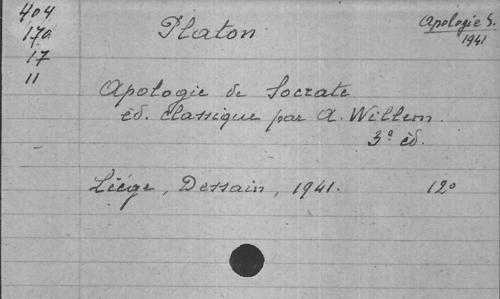 404
170
17
11
Platon
Apologie S.
1941
Apologie de Socrate
éd. classique par A. Willem.
3e éd.
Liége, Dessain, 1941. 12o